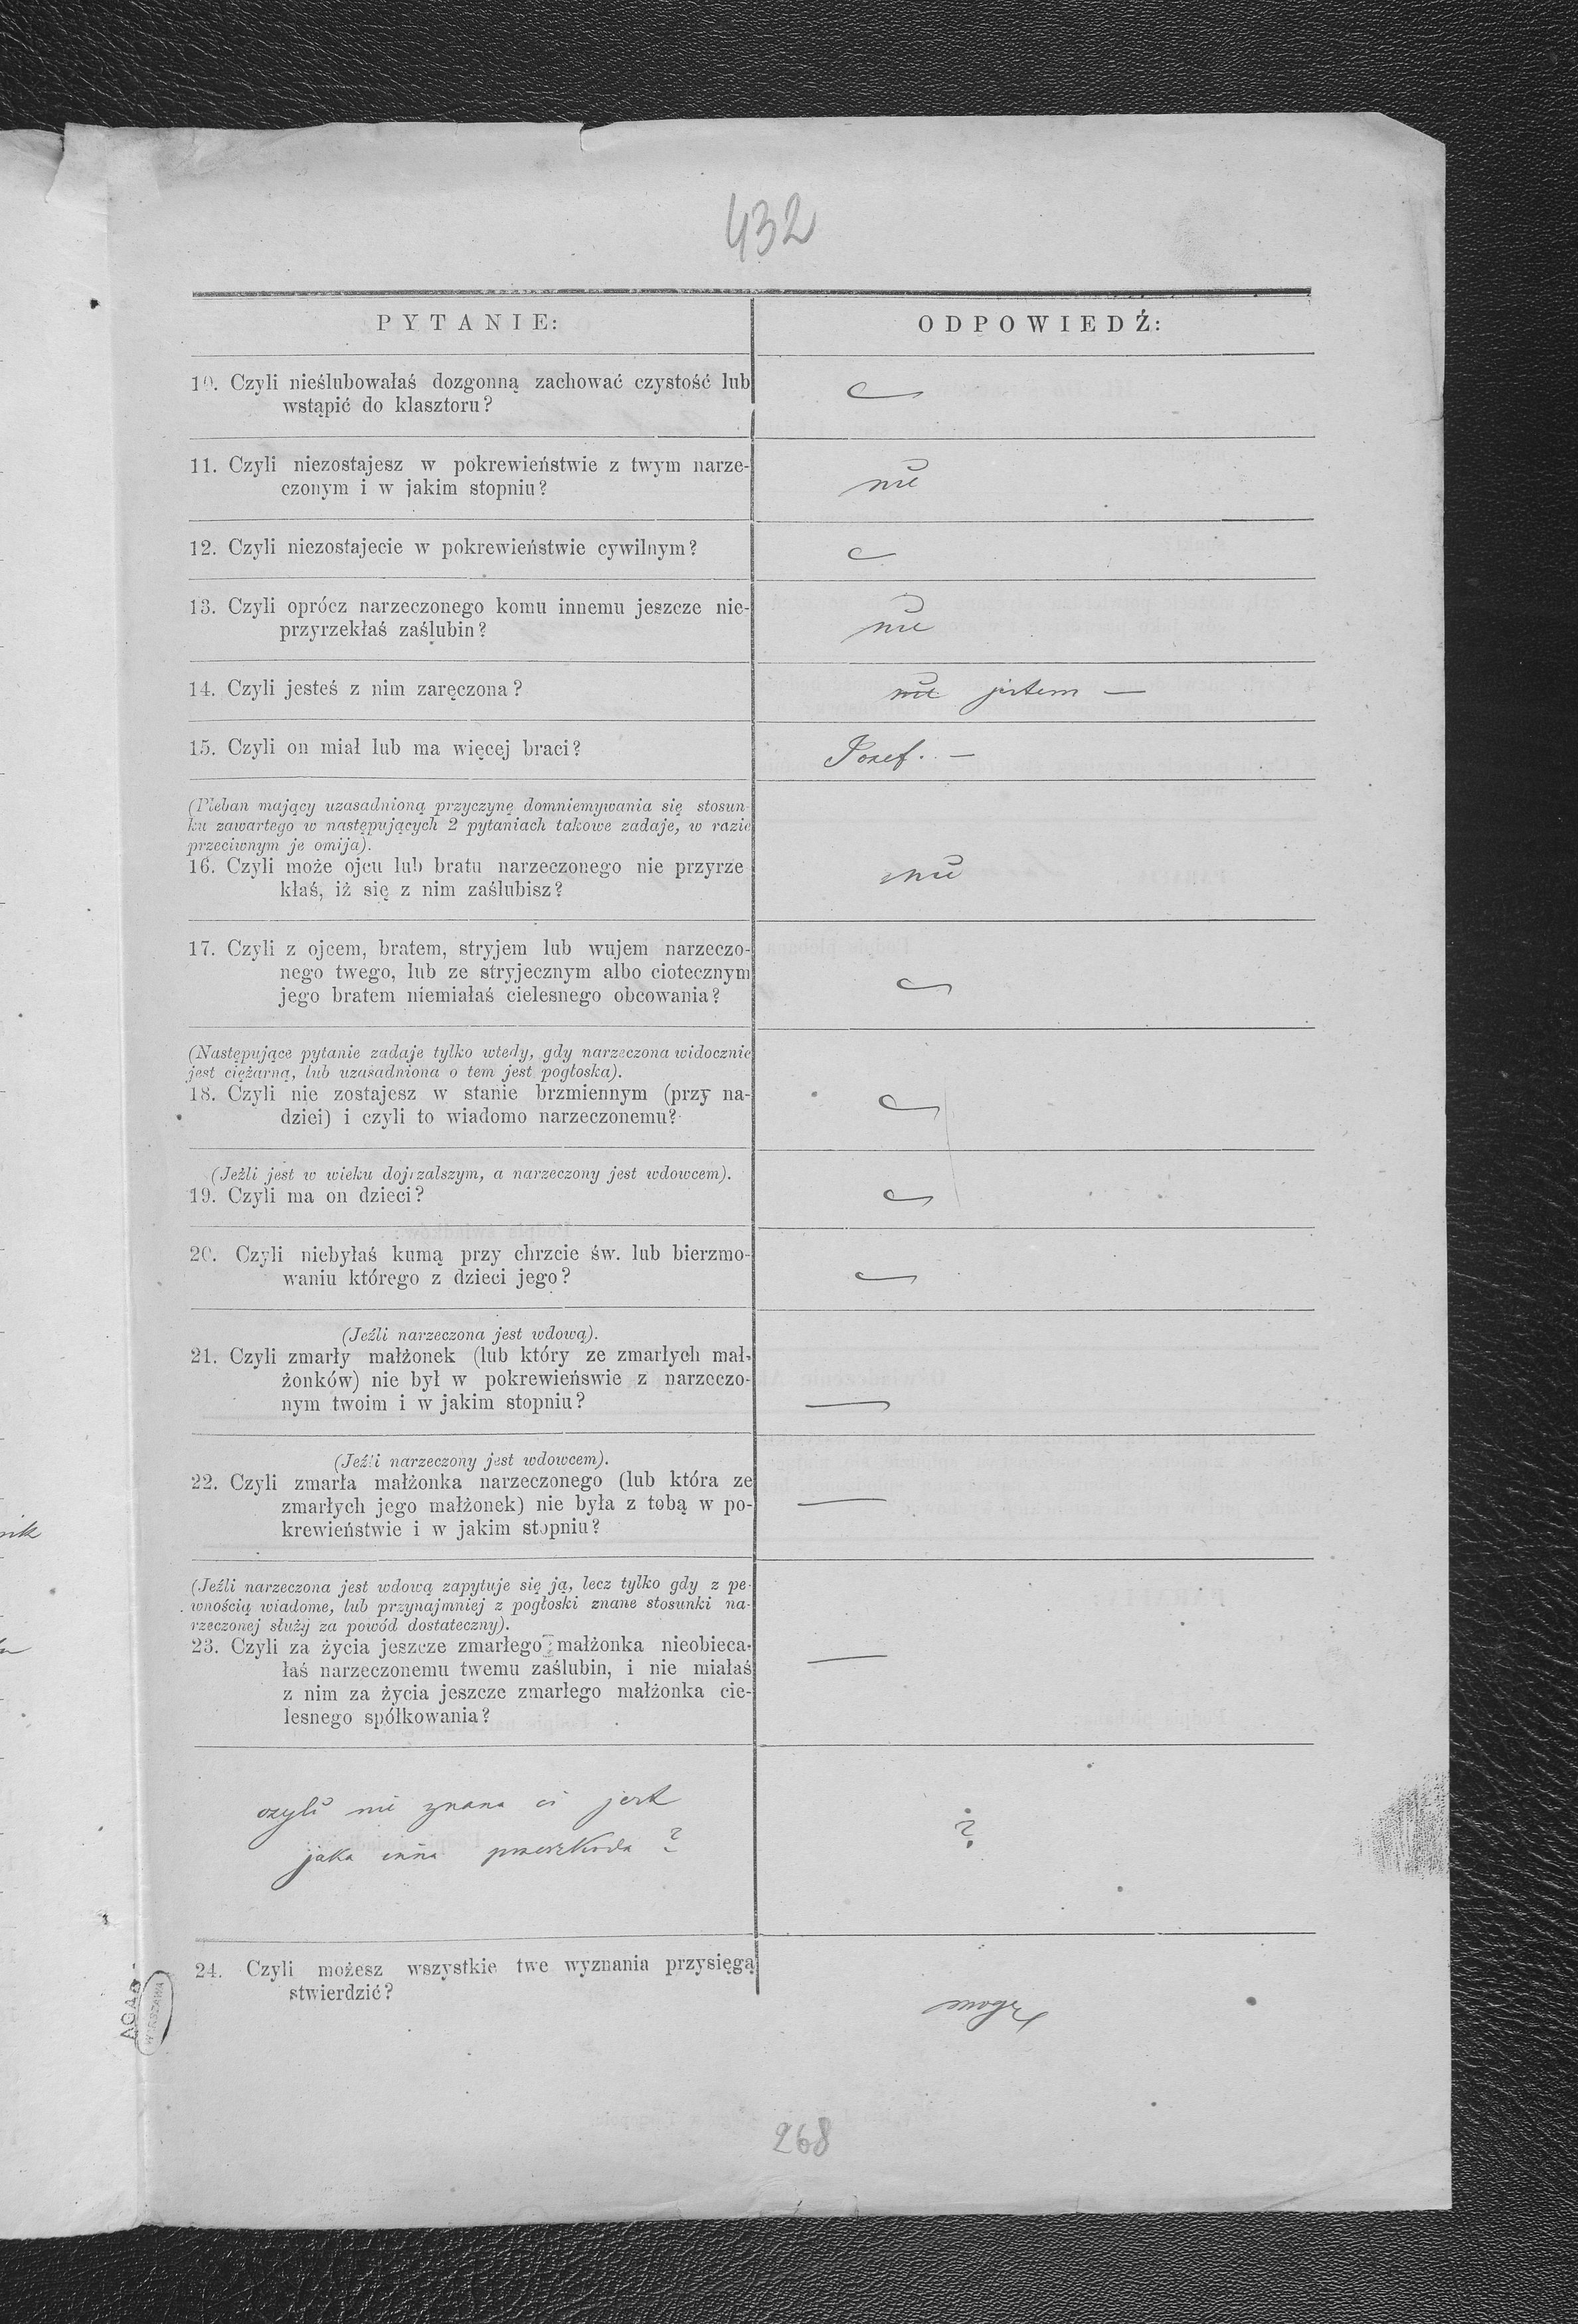 432
PYTANIE:
ODPOWIEDŹ:
10. Czyli nieślubowałaś dozgonną zachować czystość lub
wstąpić do klasztoru?
11. Czyli niezostajesz w pokrewieństwie z twym narze-
czonym i w jakim stopniu?
nie
12. Czyli niezostajecie w pokrewieństwie cywilnym?
13. Czyli oprócz narzeczonego komu innemu jeszcze nie-
przyrzekłaś zaślubin?
nie
14. Czyli jesteś z nim zaręczona?
nie jestem —
15. Czyli on miał lub ma więcej braci?
Józef. —
(Pleban mający uzasadnioną przyczynę domniemywania się stosun-
ku zawartego w następujących 2 pytaniach takowe zadaje, w razie
przeciwnym je omija).
16. Czyli może ojcu lub bratu narzeczonego nie przyrze
kłaś, iż się z nim zaślubisz?
nie
17. Czyli z ojcem, bratem, stryjem lub wujem narzeczo-
nego twego, lub ze stryjecznym albo ciotecznym
jego bratem niemiałaś cielesnego obcowania?
(Następujące pytanie zadaje tylko wtedy, gdy narzeczona widocznie
jest ciężarną, lub uzasadniona o tem jest pogłoska).
18. Czyli nie zostajesz w stanie brzmiennym (przy na-
dziei) i czyli to wiadomo narzeczonemu?
(Jeżli jest w wieku dojrzalszym, a narzeczony jest wdowcem).
19. Czyli ma on dzieci?
20. Czyli niebyłaś kumą przy chrzcie św. lub bierzmo-
waniu którego z dzieci jego?
(Jeźli narzeczona jest wdową).
21. Czyli zmarły małżonek (lub który ze zmarłych mał-
żonków) nie był w pokrewieńswie z narzeczo-
nym twoim i w jakim stopniu?
—
(Jeźli narzeczony jest wdowcem).
22. Czyli zmarła małżonka narzeczonego (lub która ze
zmarłych jego małżonek) nie była z tobą w po-
krewieństwie i w jakim stopniu?
—
(Jeźli narzeczona jest wdową zapytuje się ją, lecz tylko gdy z pe-
wnością wiadome, lub przynajmniej z pogłoski znane stosunki na-
rzeczonej służy za powód dostateczny).
23. Czyli za życia jeszcze zmarłego małżonka nieobieca-
łaś narzeczonemu twemu zaślubin, i nie miałaś
z nim za życia jeszcze zmarłego małżonka cie-
lesnego spółkowania?
—
czyli nie znana ci jest
jaka inna przeszkoda?
?
24. Czyli możesz wszystkie twe wyznania przysięgą
stwierdzić?
mogę
AGAD
WARSZAWA
268